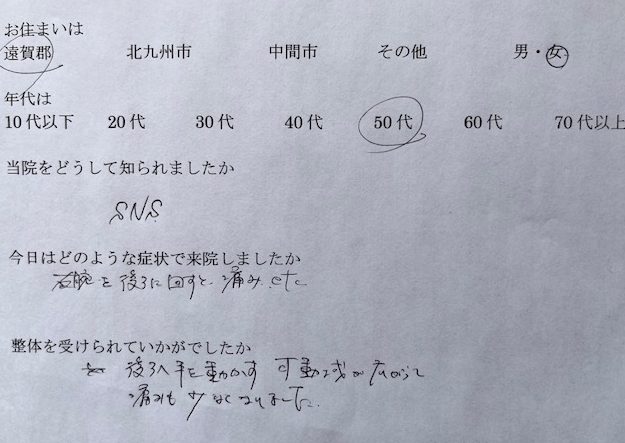 お住まいは
遠賀郡 北九州市 中間市 その他 男・女
年代は
10代以下 20代 30代 40代 50代 60代 70代以上
当院をどうして知られましたか
SNS
今日はどのような症状で来院しましたか
右腕を後ろに回すと痛み.etc
整体を受けられていかがでしたか
後ろへ手を動かす 可動域が広がって
痛みも少なくなりました.